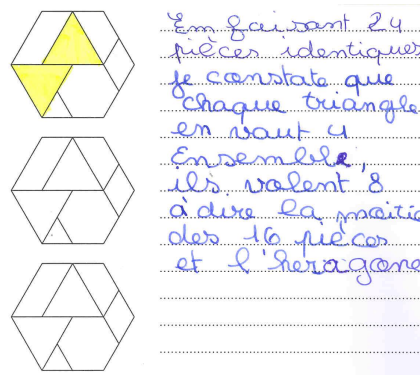 En faisant 24
pièces identiques
je constate que
chaque triangle
en vaut 4
Ensemble,
ils valent 8
à dire la moitié
des 16 pièces
et l'hexagone